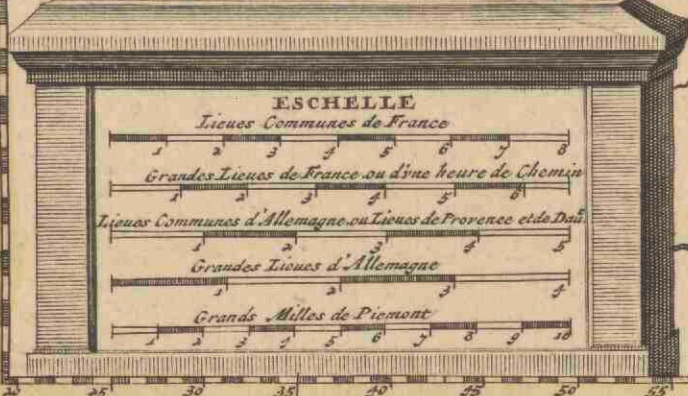 ESCHELLE
Lieues Communes de France
1 2 3 4 5 6 7 8
Grandes Lieues de France ou d'vne heure de Chemin
1 2 3 4 5 6
Lieues Communes d'Allemagne ou Lieues de Provence et de Dau.
1 2 3 4 5
Grandes Lieues d'Allemagne
1 2 3 4
Grands Milles de Piemont
1 2 3 4 5 6 7 8 9 10
20 25 30 35 40 45 50 55